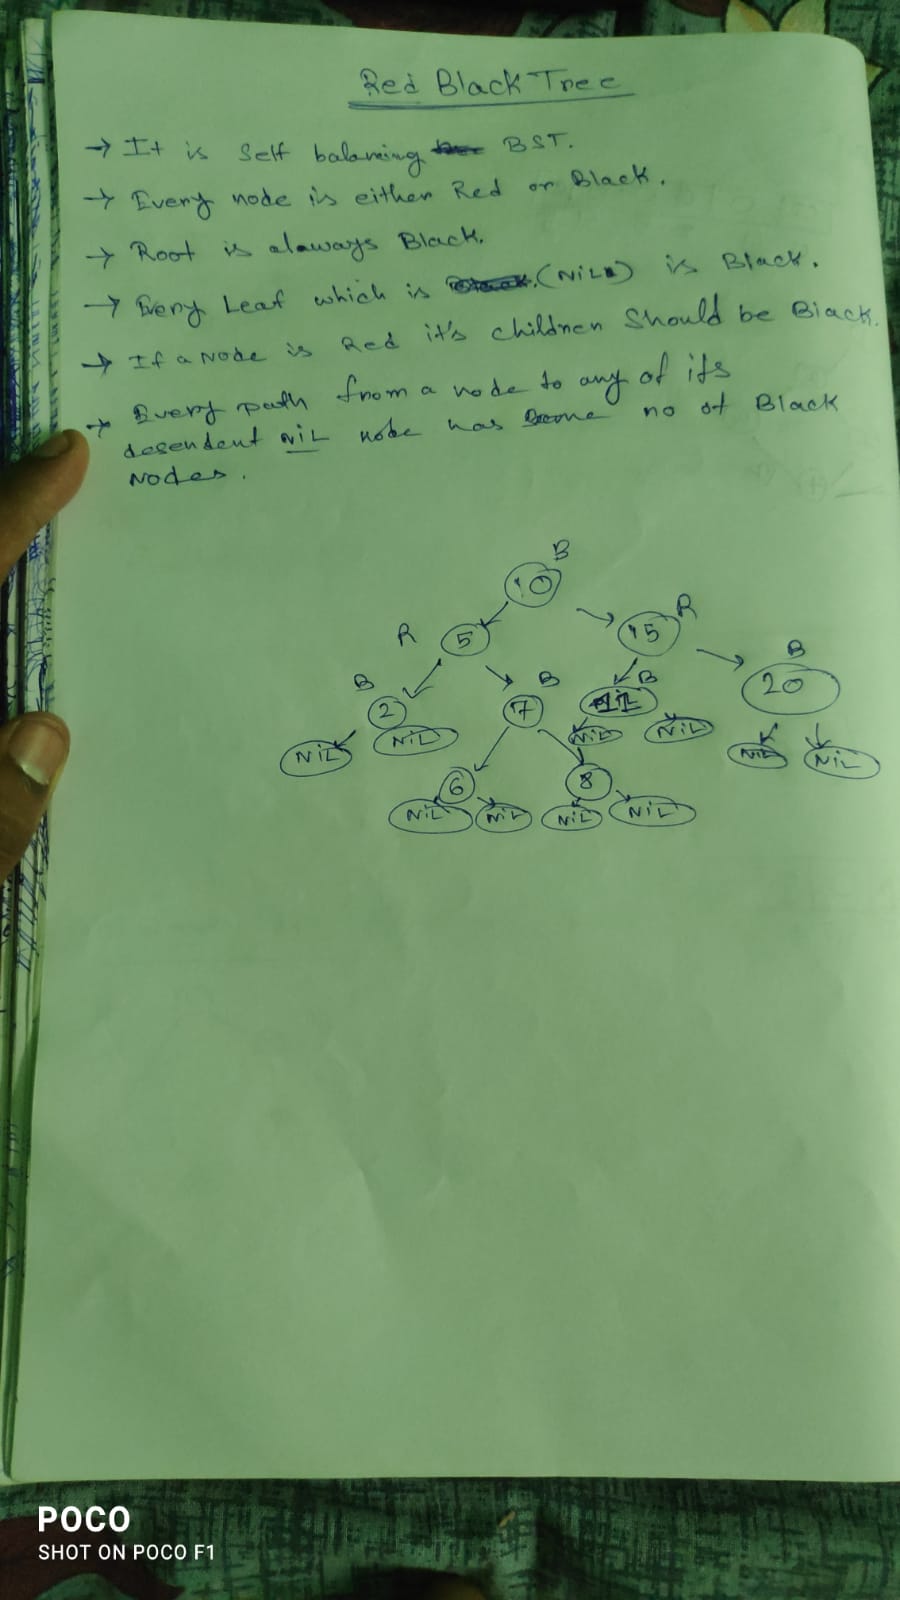 Red Black Tree
→ It is Self balancing BST.
→ Every node is either Red or Black.
→ Root is always Black.
→ Every Leaf which is (NiL) is Black.
→ If a Node is Red it's children Should be Black.
→ Every path from a node to any of its
desendent NiL node has Some no of Black
Nodes.
B
10
R 5 15 R
B 2 7 B 11 B 20 B
NiL NiL NiL NiL NiL NiL
6 8
NiL NiL NiL NiL
POCO
SHOT ON POCO F1